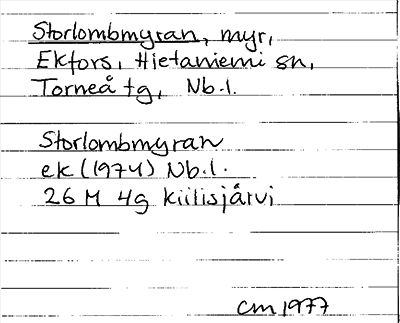 Storlombmyran, myr,
Ekfors, Hietaniemi sn,
Torneå tg, Nb.l.
Storlombmyran
ek (1974) Nb.l.
26 M 4g Kiilisjärvi
CM 1977